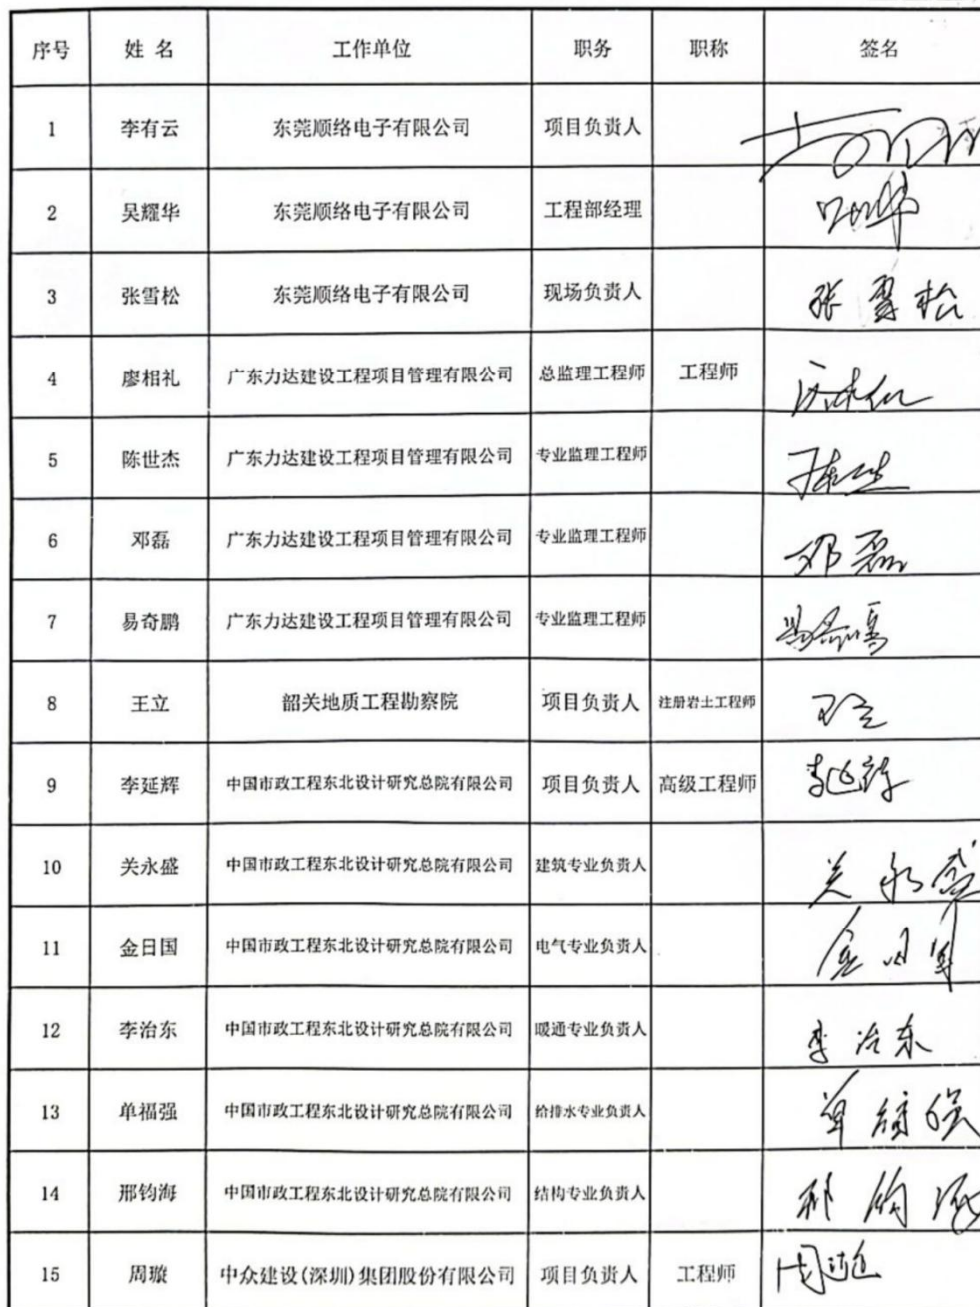 序号 姓 名 工作单位 职务 职称 签名
1 李有云 东莞顺络电子有限公司 项目负责人
2 吴耀华 东莞顺络电子有限公司 工程部经理
3 张雪松 东莞顺络电子有限公司 现场负责人 张雪松
4 廖相礼 广东力达建设工程项目管理有限公司 总监理工程师 工程师
5 陈世杰 广东力达建设工程项目管理有限公司 专业监理工程师
6 邓磊 广东力达建设工程项目管理有限公司 专业监理工程师 邓磊
7 易奇鹏 广东力达建设工程项目管理有限公司 专业监理工程师
8 王立 韶关地质工程勘察院 项目负责人 注册岩土工程师 王立
9 李延辉 中国市政工程东北设计研究总院有限公司 项目负责人 高级工程师 李延辉
10 关永盛 中国市政工程东北设计研究总院有限公司 建筑专业负责人 关永盛
11 金日国 中国市政工程东北设计研究总院有限公司 电气专业负责人
12 李治东 中国市政工程东北设计研究总院有限公司 暖通专业负责人 李治东
13 单福强 中国市政工程东北设计研究总院有限公司 给排水专业负责人 单福强
14 邢钧海 中国市政工程东北设计研究总院有限公司 结构专业负责人 邢钧海
15 周璇 中众建设(深圳)集团股份有限公司 项目负责人 工程师